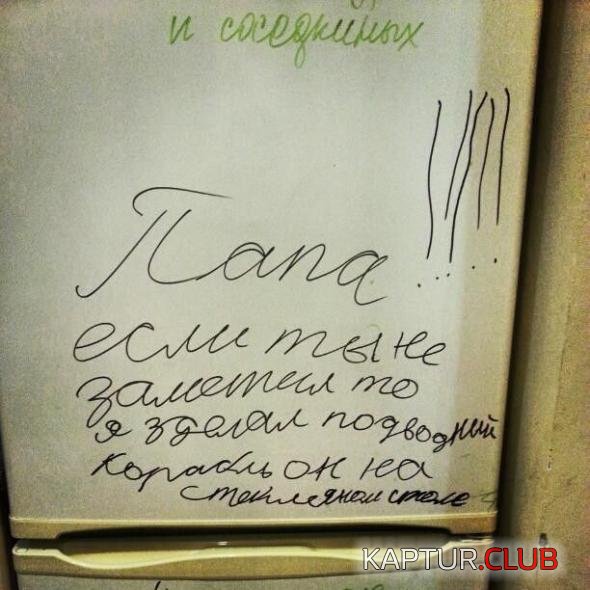 и соседкиных
Папа !!!!!
если ты не
заметил то
я зделал подводный
корабль он на
стекляном столе
KAPTUR.CLUB